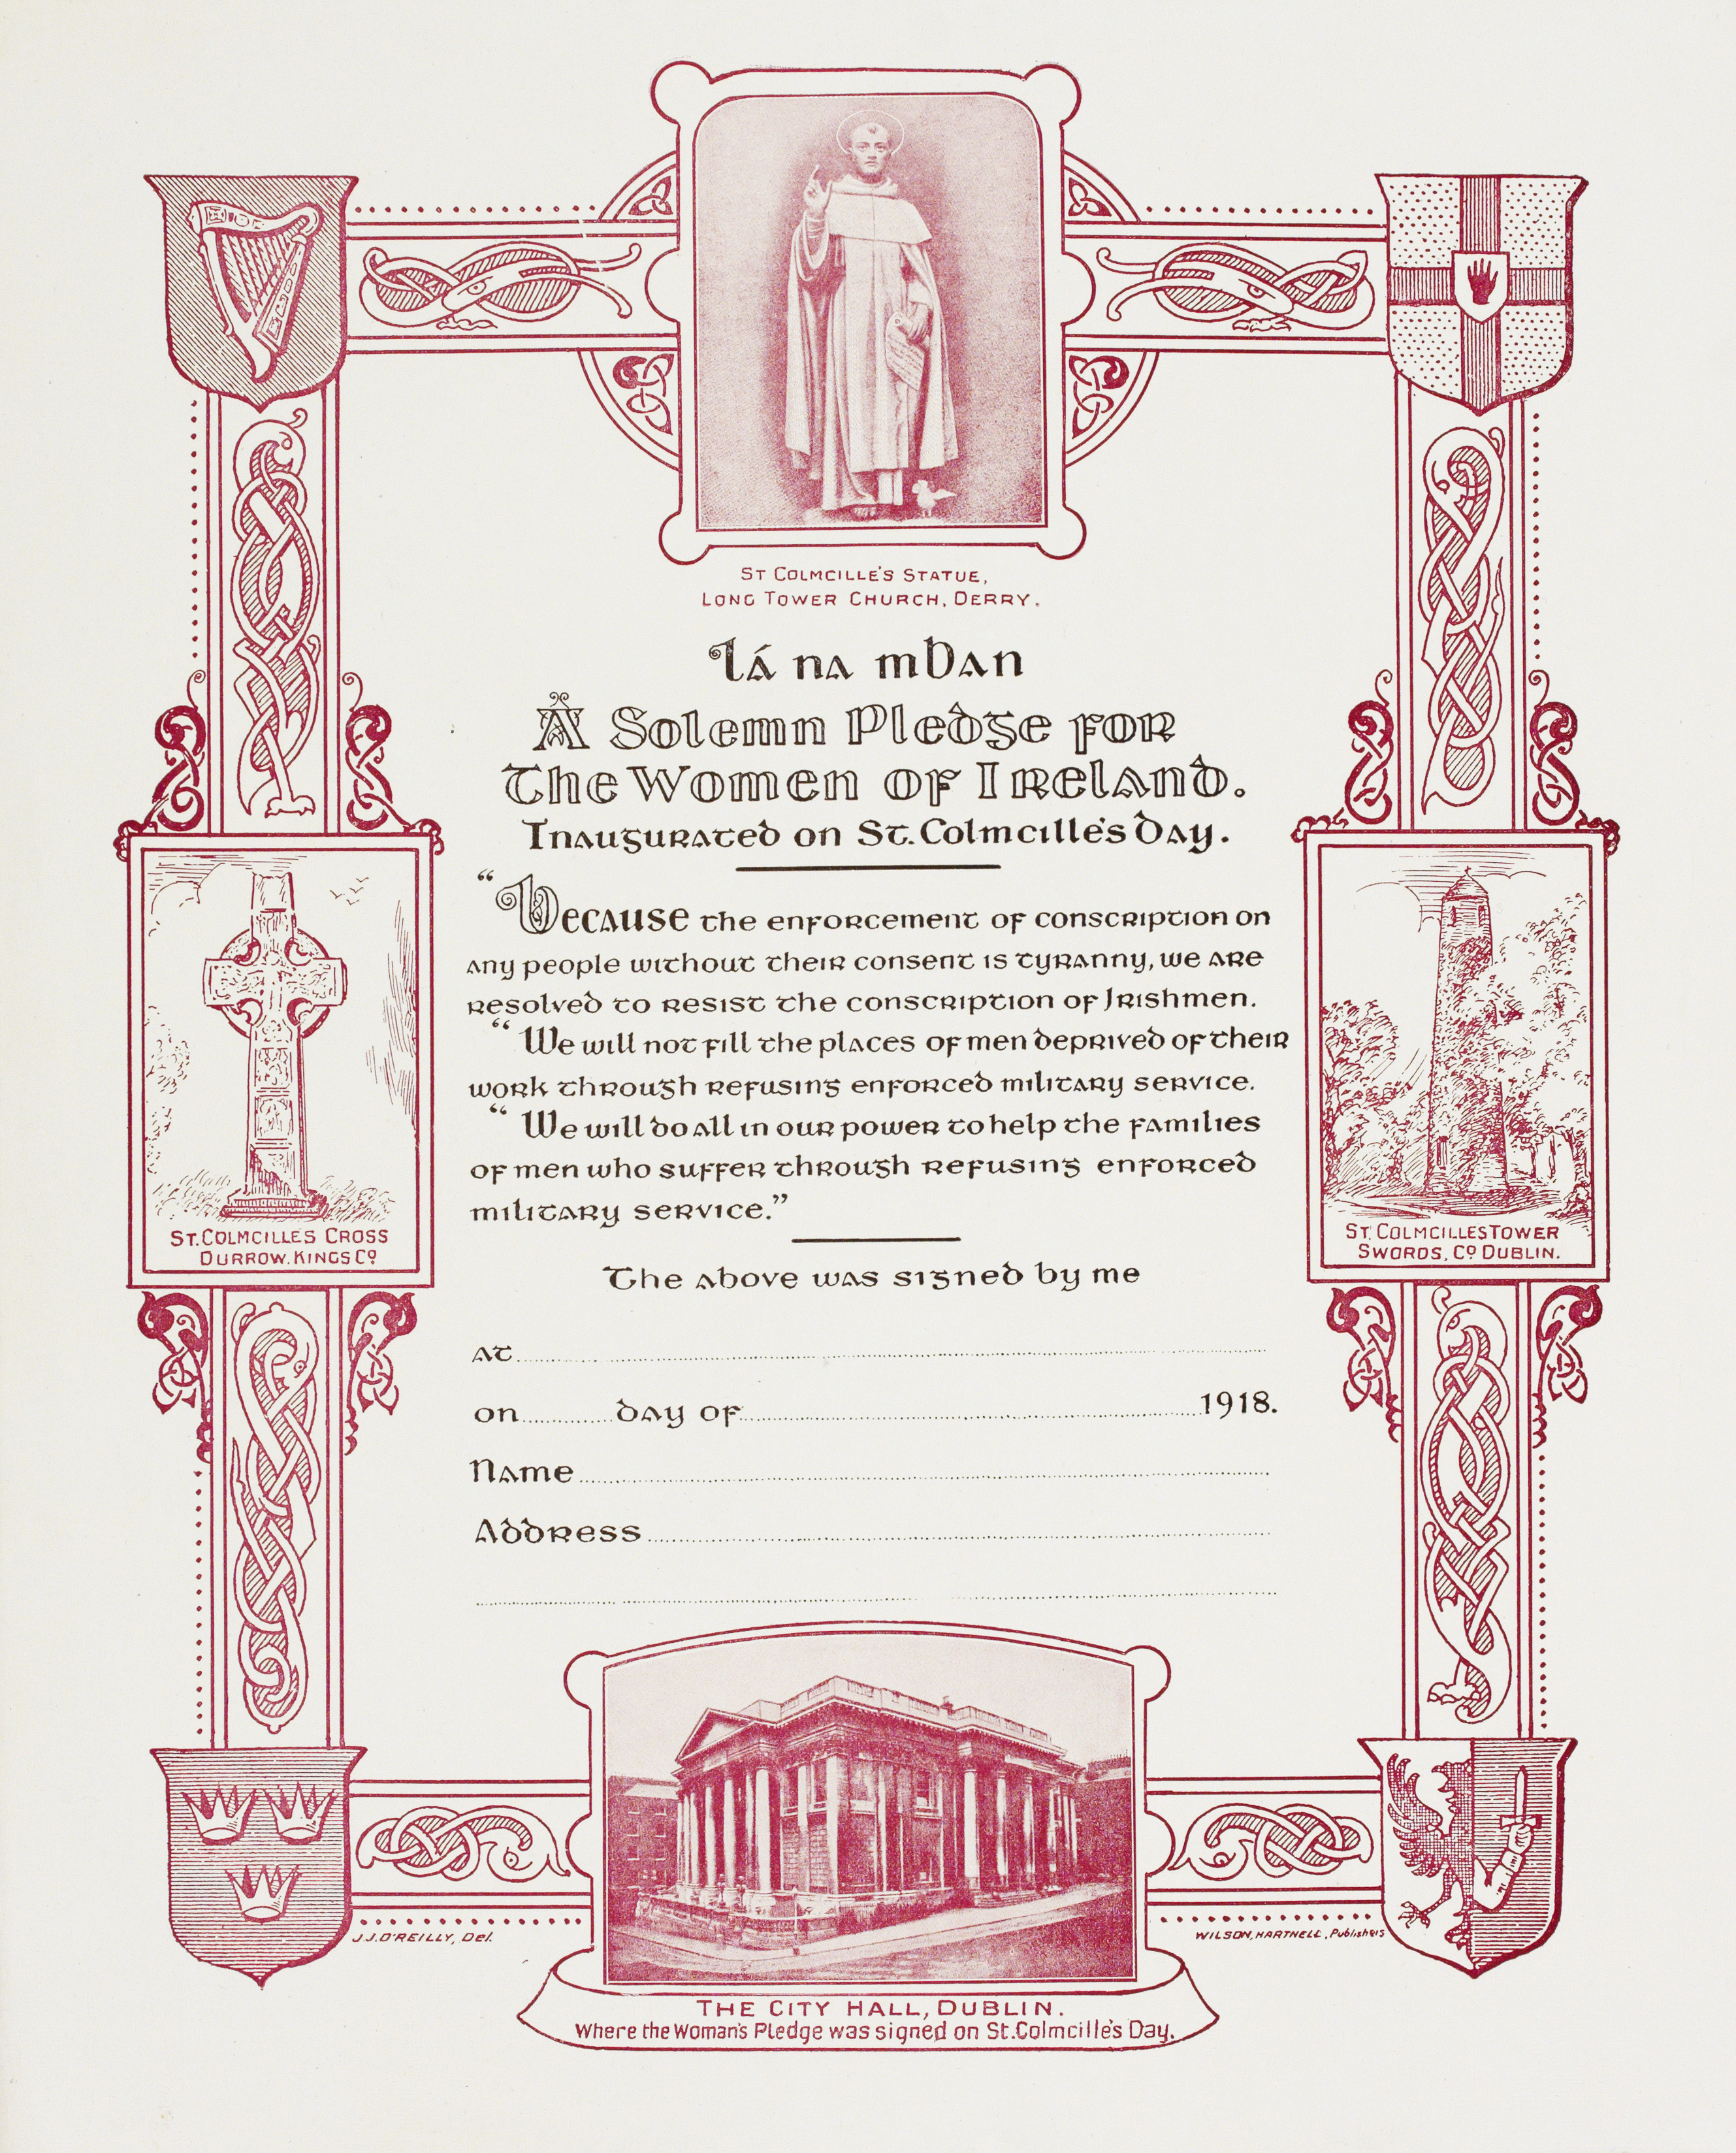 ST COLMCILLE'S STATUE,
LONG TOWER CHURCH, DERRY.
Lá na mBan
A Solemn Pledge for
The Women of Ireland.
Inaugurated on St. Colmcille's Day.
"Because the enforcement of conscription on
any people without their consent is tyranny, we are
resolved to resist the conscription of Irishmen.
"We will not fill the places of men deprived of their
work through refusing enforced military service.
"We will do all in our power to help the families
of men who suffer through refusing enforced
military service."
ST. COLMCILLES CROSS
DURROW. KINGS Co
ST. COLMCILLES TOWER
SWORDS, Co DUBLIN.
The above was signed by me
at
on day of 1918.
Name
Address
J.J. O'REILLY, Del.
WILSON, HARTNELL, Publishers
THE CITY HALL, DUBLIN.
Where the Woman's Pledge was signed on St. Colmcille's Day.